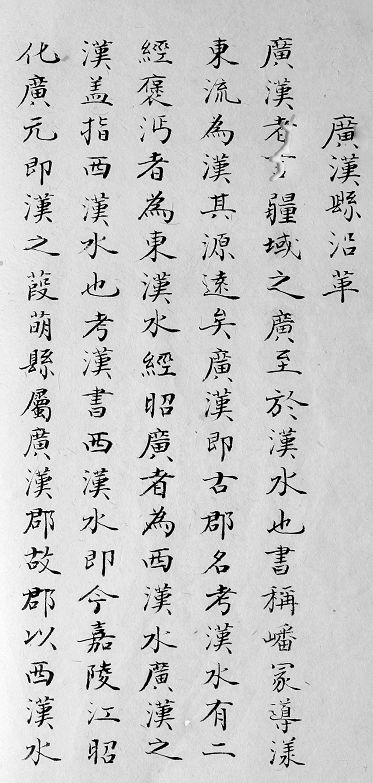 廣漢縣沿革
廣漢者言疆域之廣至於漢水也書稱嶓冢導漾
東流為漢其源遠矣廣漢即古郡名考漢水有二
經褒沔者為東漢水經昭廣者為西漢水廣漢之
漢盖指西漢水也考漢書西漢水即今嘉陵江昭
化廣元即漢之葭萌縣屬廣漢郡故郡以西漢水